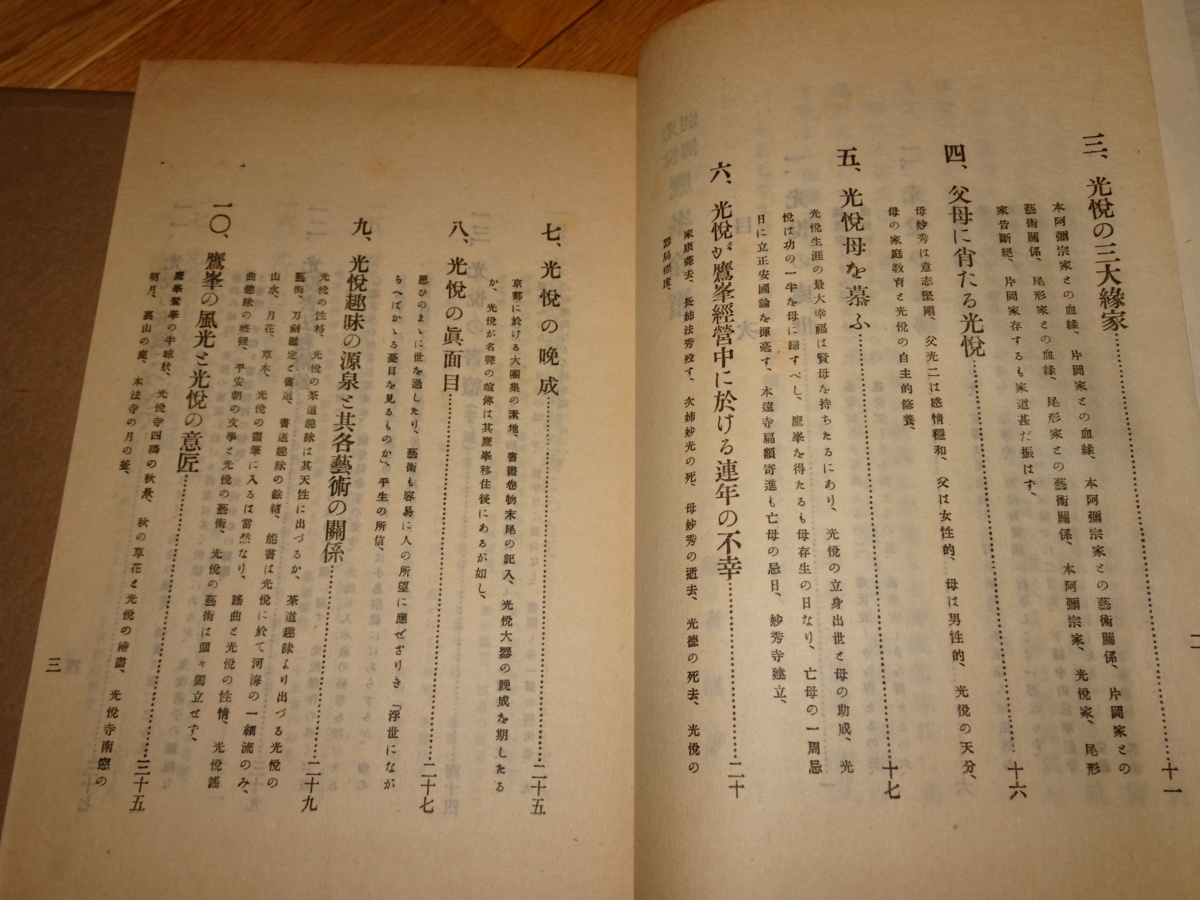 二
三、光悅の三大緣家……十一
本阿彌宗家との血緣、片岡家との血緣、本阿彌宗家との藝術關係、片岡家との
藝術關係、尾形家との血緣、尾形家との藝術關係、本阿彌宗家、光悅家、尾形
家皆斷絕、片岡家存するも家道甚だ振はず、
四、父母に肖たる光悅……十六
母妙秀は意志堅剛、父光二は感情穩和、父は女性的、母は男性的、光悅の天分、
母の家庭敎育と光悅の自主的修養、
五、光悅母を慕ふ……十七
光悅生涯の最大幸福は賢母を持ちたるにあり、光悅の立身出世と母の助成、光
悅は功の一半を母に歸すべし、鷹峯を得たるも母存生の日なり、亡母の一周忌
日に立正安國論を揮毫す、本遠寺扁額寄進も亡母の忌日、妙秀寺建立、
六、光悅が鷹峯經營中に於ける連年の不幸……二十
家康薨去、長姉法秀歿す、次姉妙光の死、母妙秀の逝去、光德の死去、光悅の
器局襟度、
七、光悅の晩成……二十五
京都に於ける大團集の素地、書畵卷物末尾の記入、光悅大器の晩成を期したる
か、光悅が名聲の喧傳は其鷹峯移住後にあるが如し、
八、光悅の眞面目……二十七
思ひのまゝに世を過したり、藝術も容易に人の所望に應ぜざりき「浮世になが
らへばかゝる憂目を見るものか、平生の所信、
九、光悅趣味の源泉と其各藝術の關係……二十九
光悅の性格、光悅の茶道趣味は其天性に出づるか、茶道趣味より出づる光悅の
藝術、刀劍鑑定と書道、書道趣味の餘緖、能書は光悅に於て河海の一細流のみ、
山水、月花、草木、光悅の畵筆に入るは當然なり、謠曲と光悅の性情、光悅謠
曲趣味の班楗、平安朝の文學と光悅の藝術、光悅の藝術は個々獨立せず、
一〇、鷹峯の風光と光悅の意匠……三十五
鷹峯鷲峯の半眺秋、光悅寺四隣の秋景、秋の草花と光悅の繪畵、光悅寺南窓の
明月、裏山の鹿、本法寺の月の釜、
三